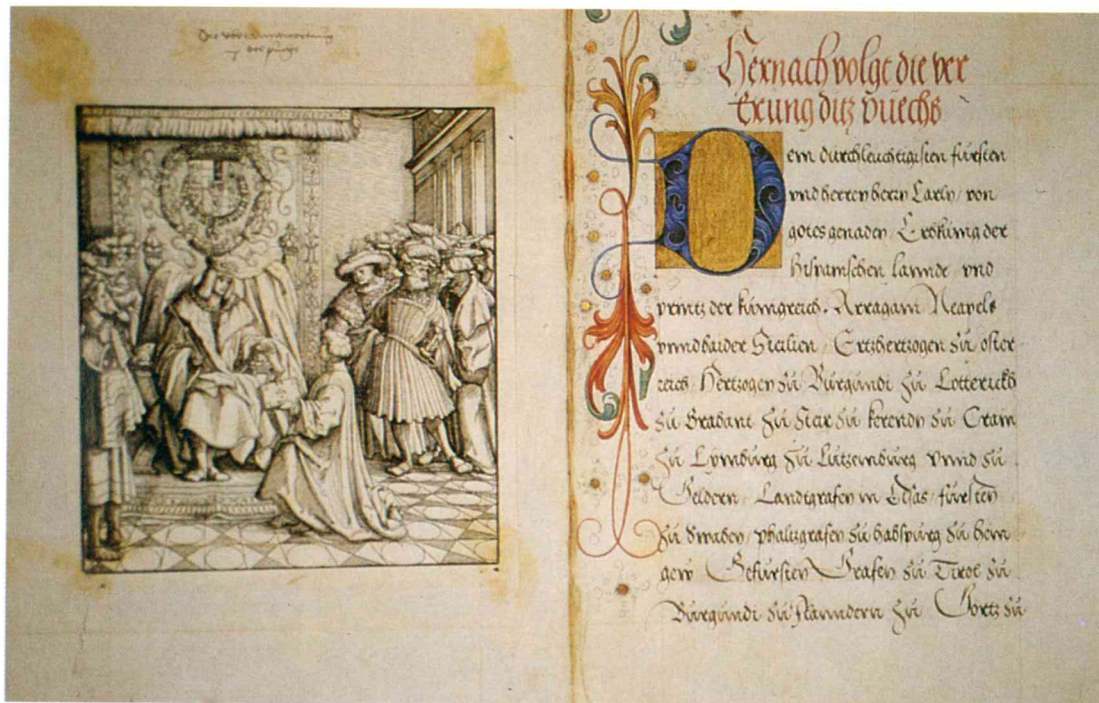 Die
des
Hernach volgt die ver
erung ditz puechs
Dem durchleuchtigisten fürsten
vnd herren herrn Carln / von
gotes genaden / Erbkünig der
hispanischen lannde / vnd
printz der künigreich. Arragani Neapels
vnnd baider Sicilien / Ertzhertzogen zü oster
reich / Hertzogen zü Bürgündi zü Lotterickh
zü Brabant zü Steir zü kerendn zü Crain
zü Lymbürg zü Lützemburg vnnd zü
Geldern / Landtgrafen in Elsas / fürsten
zü Swaben / phaltzgrafen zü habspürg zü heni
gew Gefürsten Grafen zü Tirol zü
Bürgündi zü flanndern zü Görtz zü